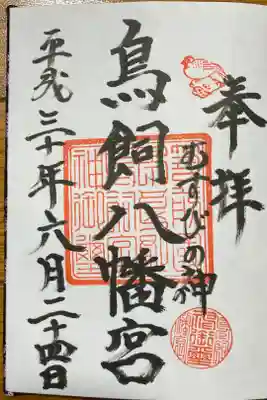 奉拝
むすびの神
鳥飼八幡宮
平成三十年六月二十四日